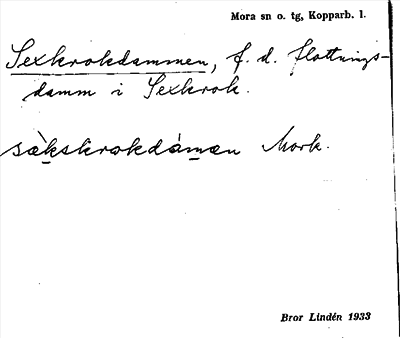 Mora sn o. tg, Kopparb. l.
Sexkrokdammen, f. d. flottnings-
damm i Sexkrok.
sàkskrokdámæn Mork.
Bror Lindén 1933